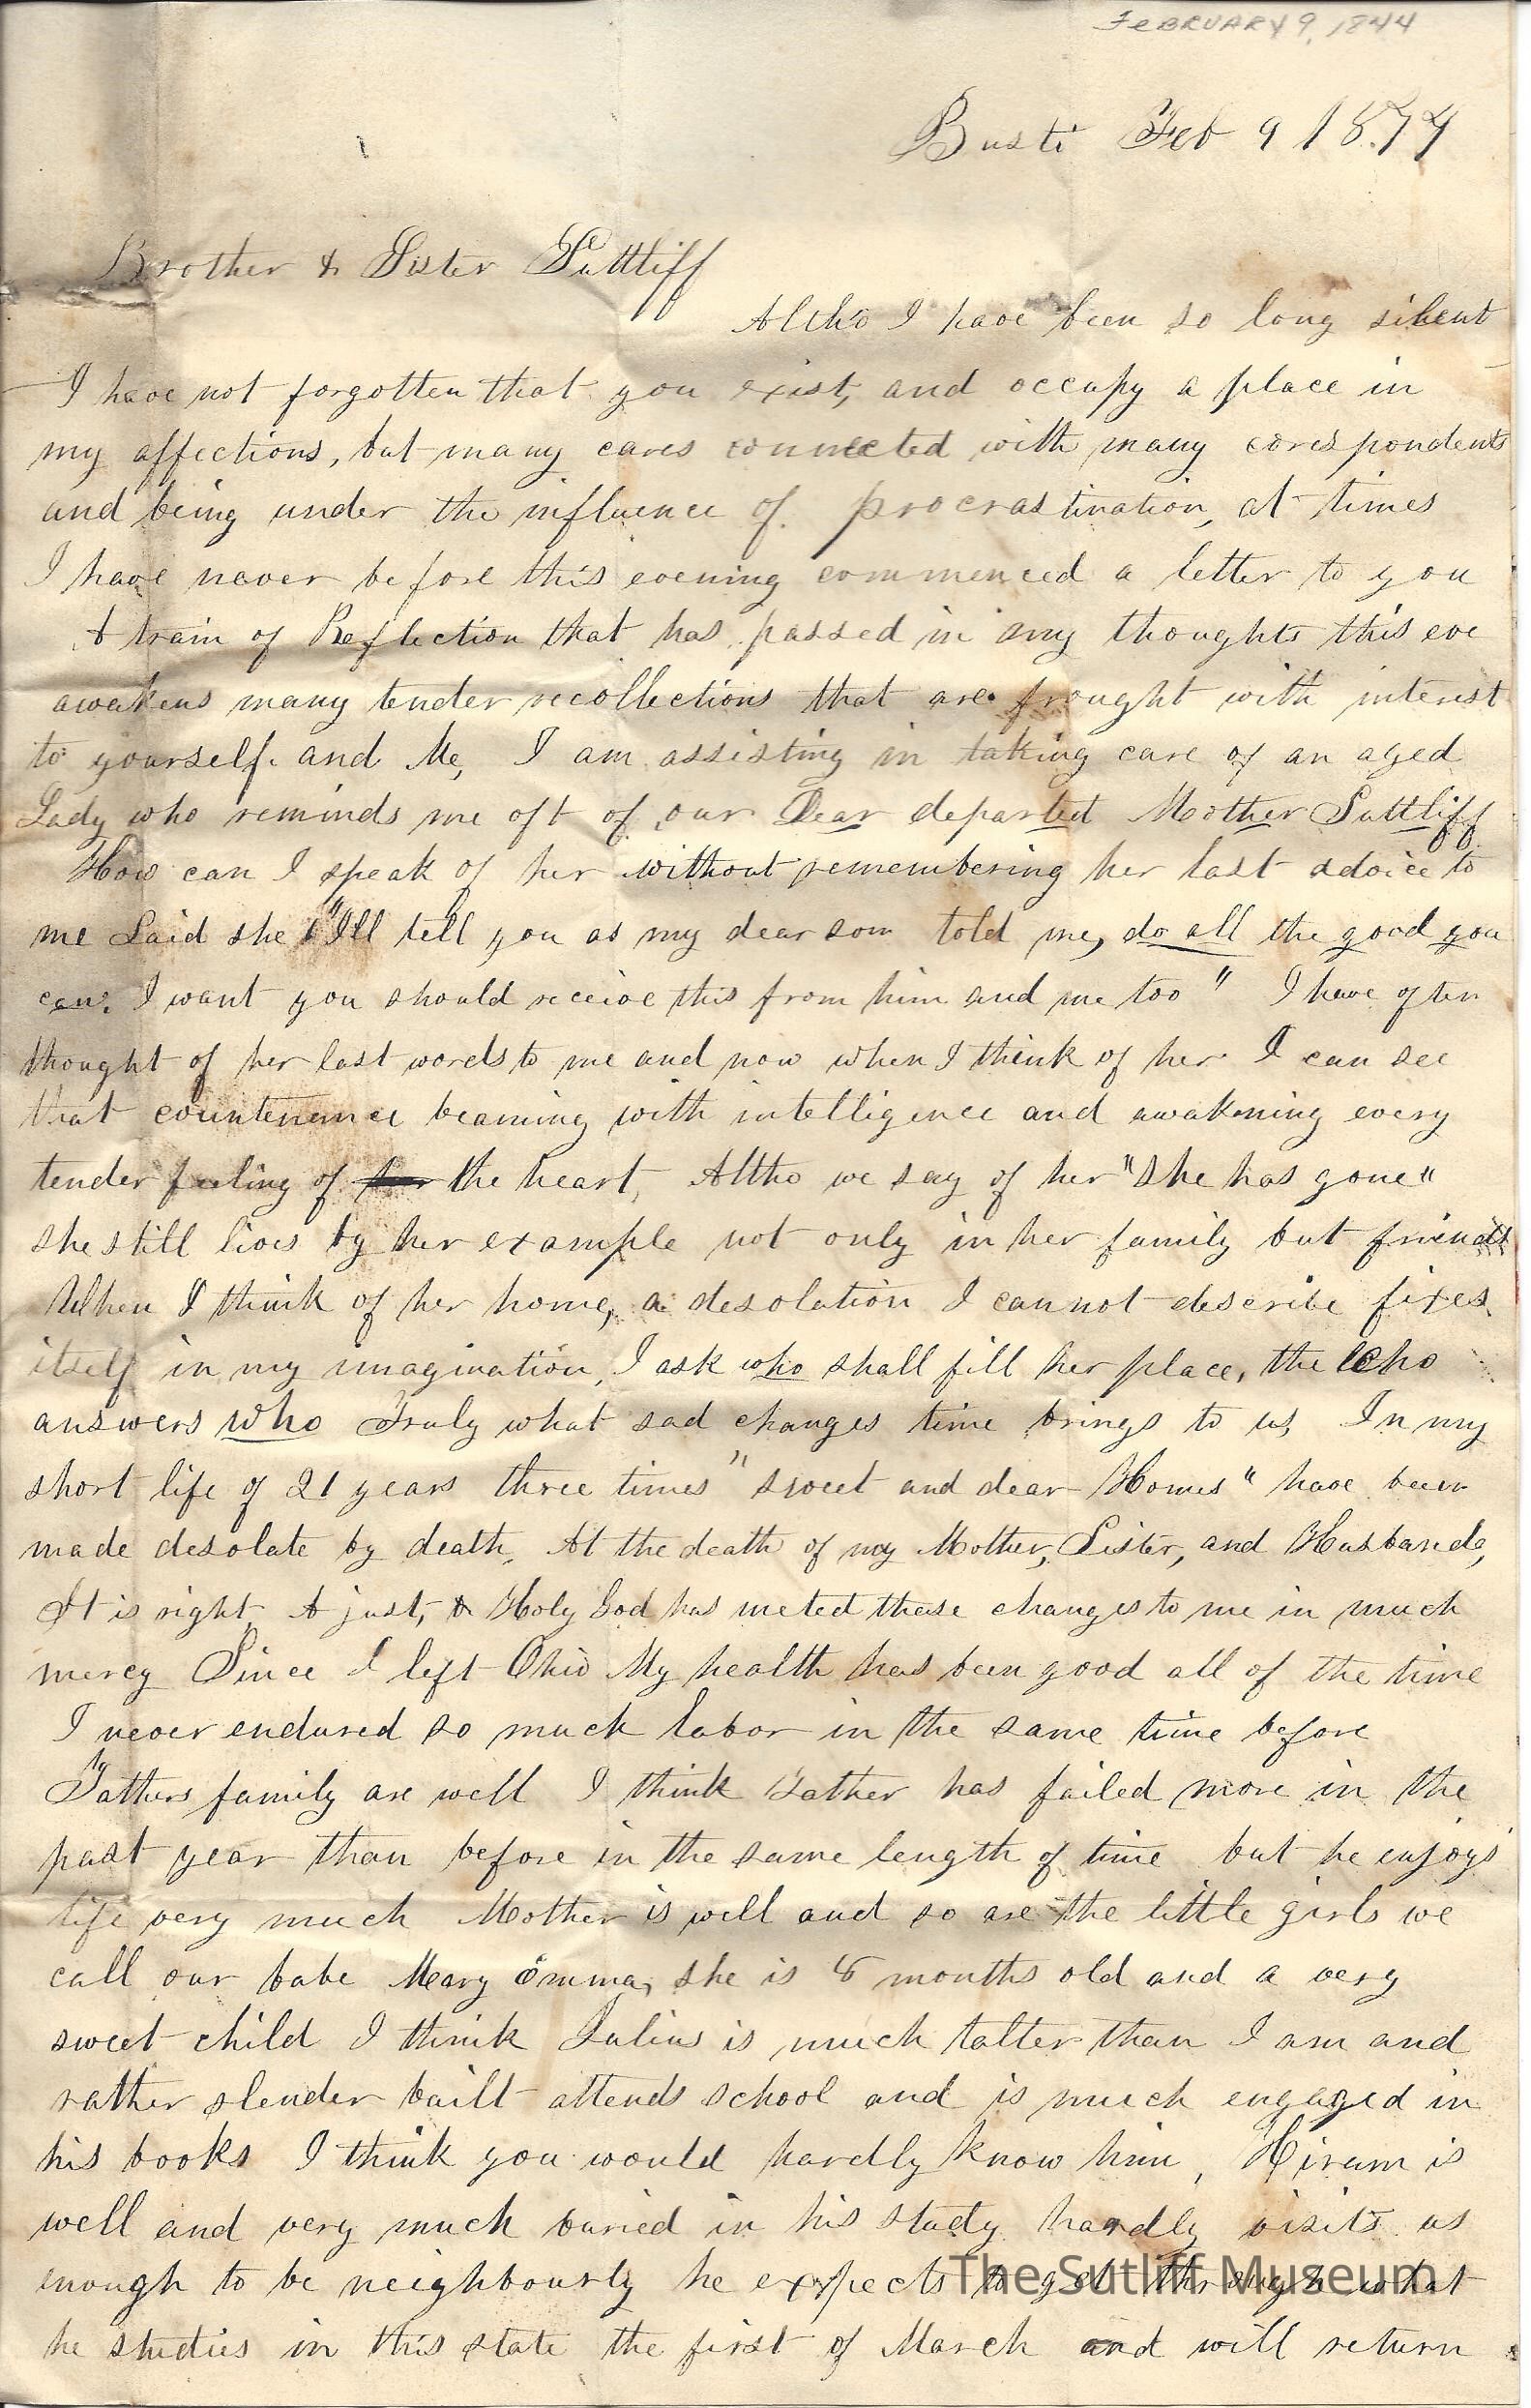 FEBRUARY 9, 1844
Busti Feb 9 1844
Brother & Sister Suttliff
Altho I have been so long silent
I have not forgotten that you exist, and occupy a place in
my affections, but many cares connected with many corespondents
and being under the influence of procrastination, at times
I have never before this evening commenced a letter to you
A train of Reflection that has passed in my thoughts this eve
awakens many tender recollections that are frought with interest
to yourself and Me, I am assisting in taking care of an aged
Lady who reminds me oft of our Dear departed Mother Suttliff
How can I speak of her without remembering her last advice to
me Said she "Ill tell you as my dear son told me, do all the good you
can. I want you should receive this from him and me too" I have often
thought of her last words to me and now when I think of her I can see
that countenance beaming with intelligence and awakning every
tender feeling of the heart, Altho we say of her "she has gone"
she still lives by her example not only in her family but friends
When I think of her home, a desolation I cannot describe fixes
itself in my imagination, I ask who shall fill her place, the Echo
answers who Truly what sad changes time brings to us, In my
short life of 21 years three times "sweet and dear Homes" have been
made desolate by death, At the death of my Mother, Sister, and Husband,
It is right A just, & Holy God has meted these changes to me in much
mercy Since I left Ohio My health has been good all of the time
I never endured so much labor in the same time before
Fathers family are well I think Father has failed more in the
past year than before in the same length of time but he enjoys
life very much Mother is well and so are the little girls we
call our babe Mary Emma, she is 8 months old and a very
sweet child I think Julius is much taller than I am and
rather slender built attends school and is much engaged in
his books I think you would hardly know him, Hiram is
well and very much buried in his study hardly visits us
enough to be neighbourly he expects to get through what
he studies in this state the first of March and will return
The Sutliff Museum